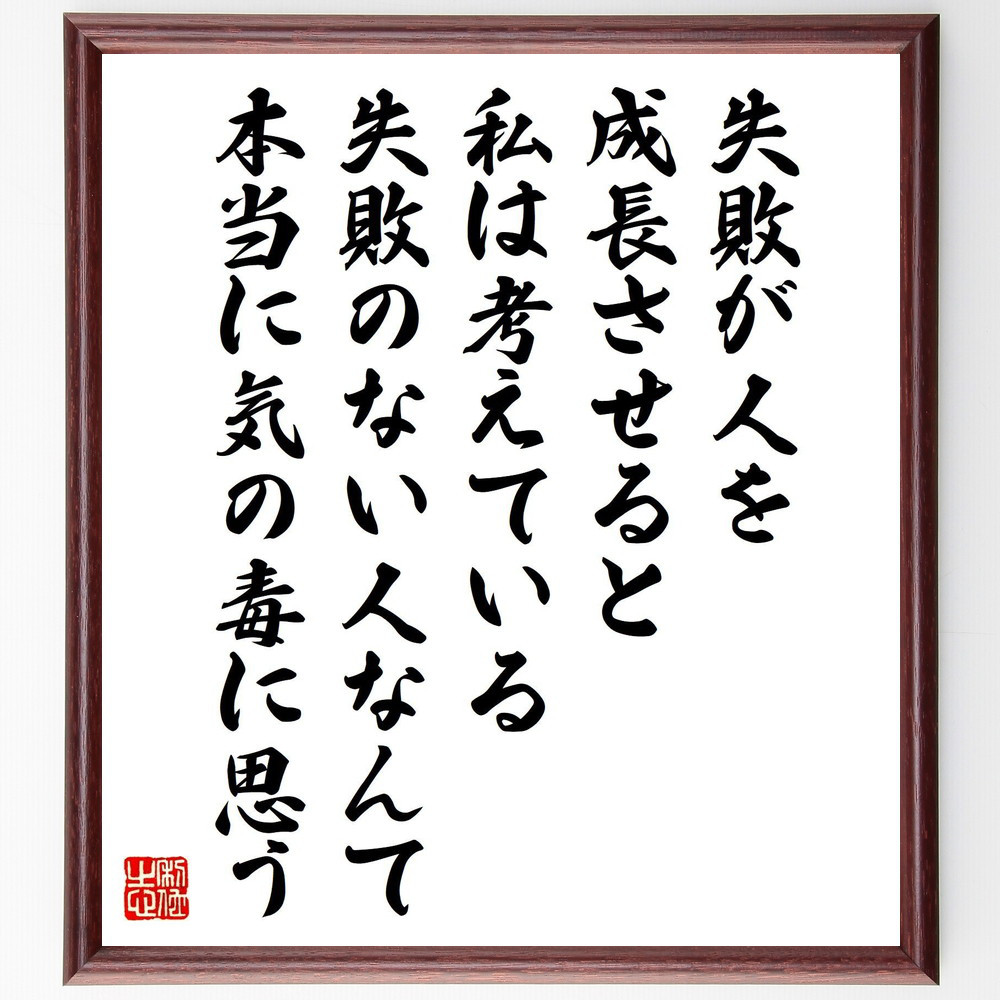 失敗が人を
成長させると
私は考えている
失敗のない人なんて
本当に気の毒に思う